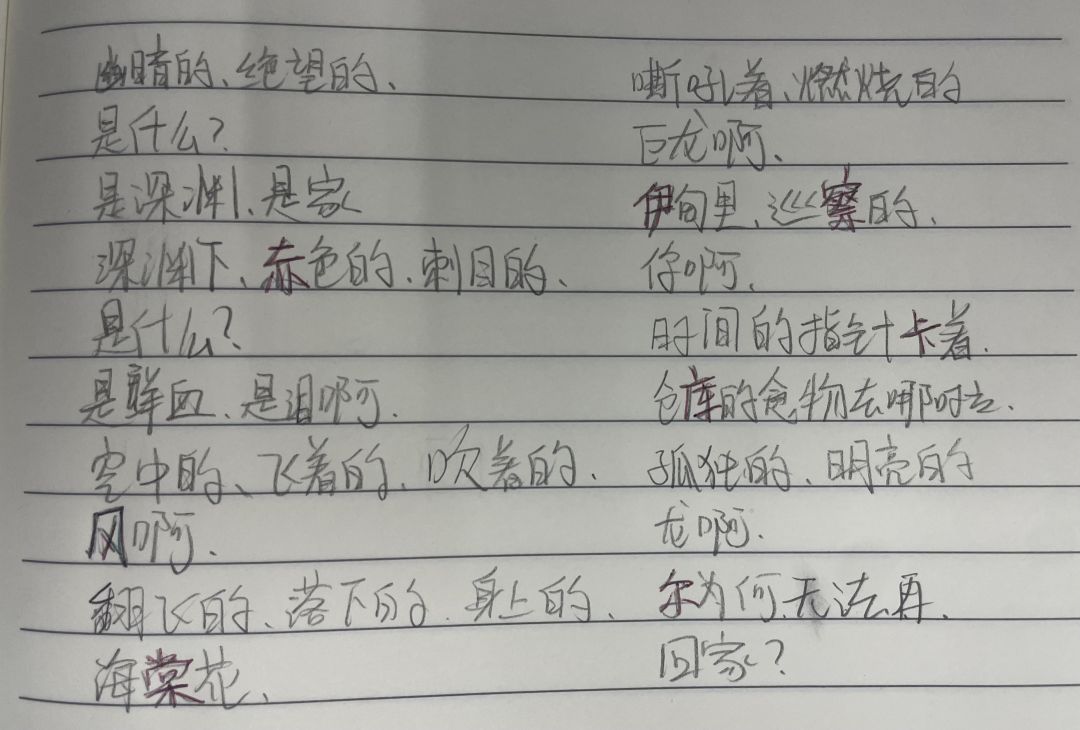 幽暗的、绝望的、
是什么?
是深渊、是家
深渊下、赤色的、刺目的、
是什么?
是鲜血、是泪啊.
空中的、飞着的、吹着的、
风啊.
翻飞的、落下的、身上的、
海棠花、
嘶吼着、燃烧的
巨龙啊、
伊甸里、巡察的、
你啊.
时间的指针卡着.
仓库的食物去哪时去.
孤独的、明亮的
龙啊.
尔为何无法再.
回家?